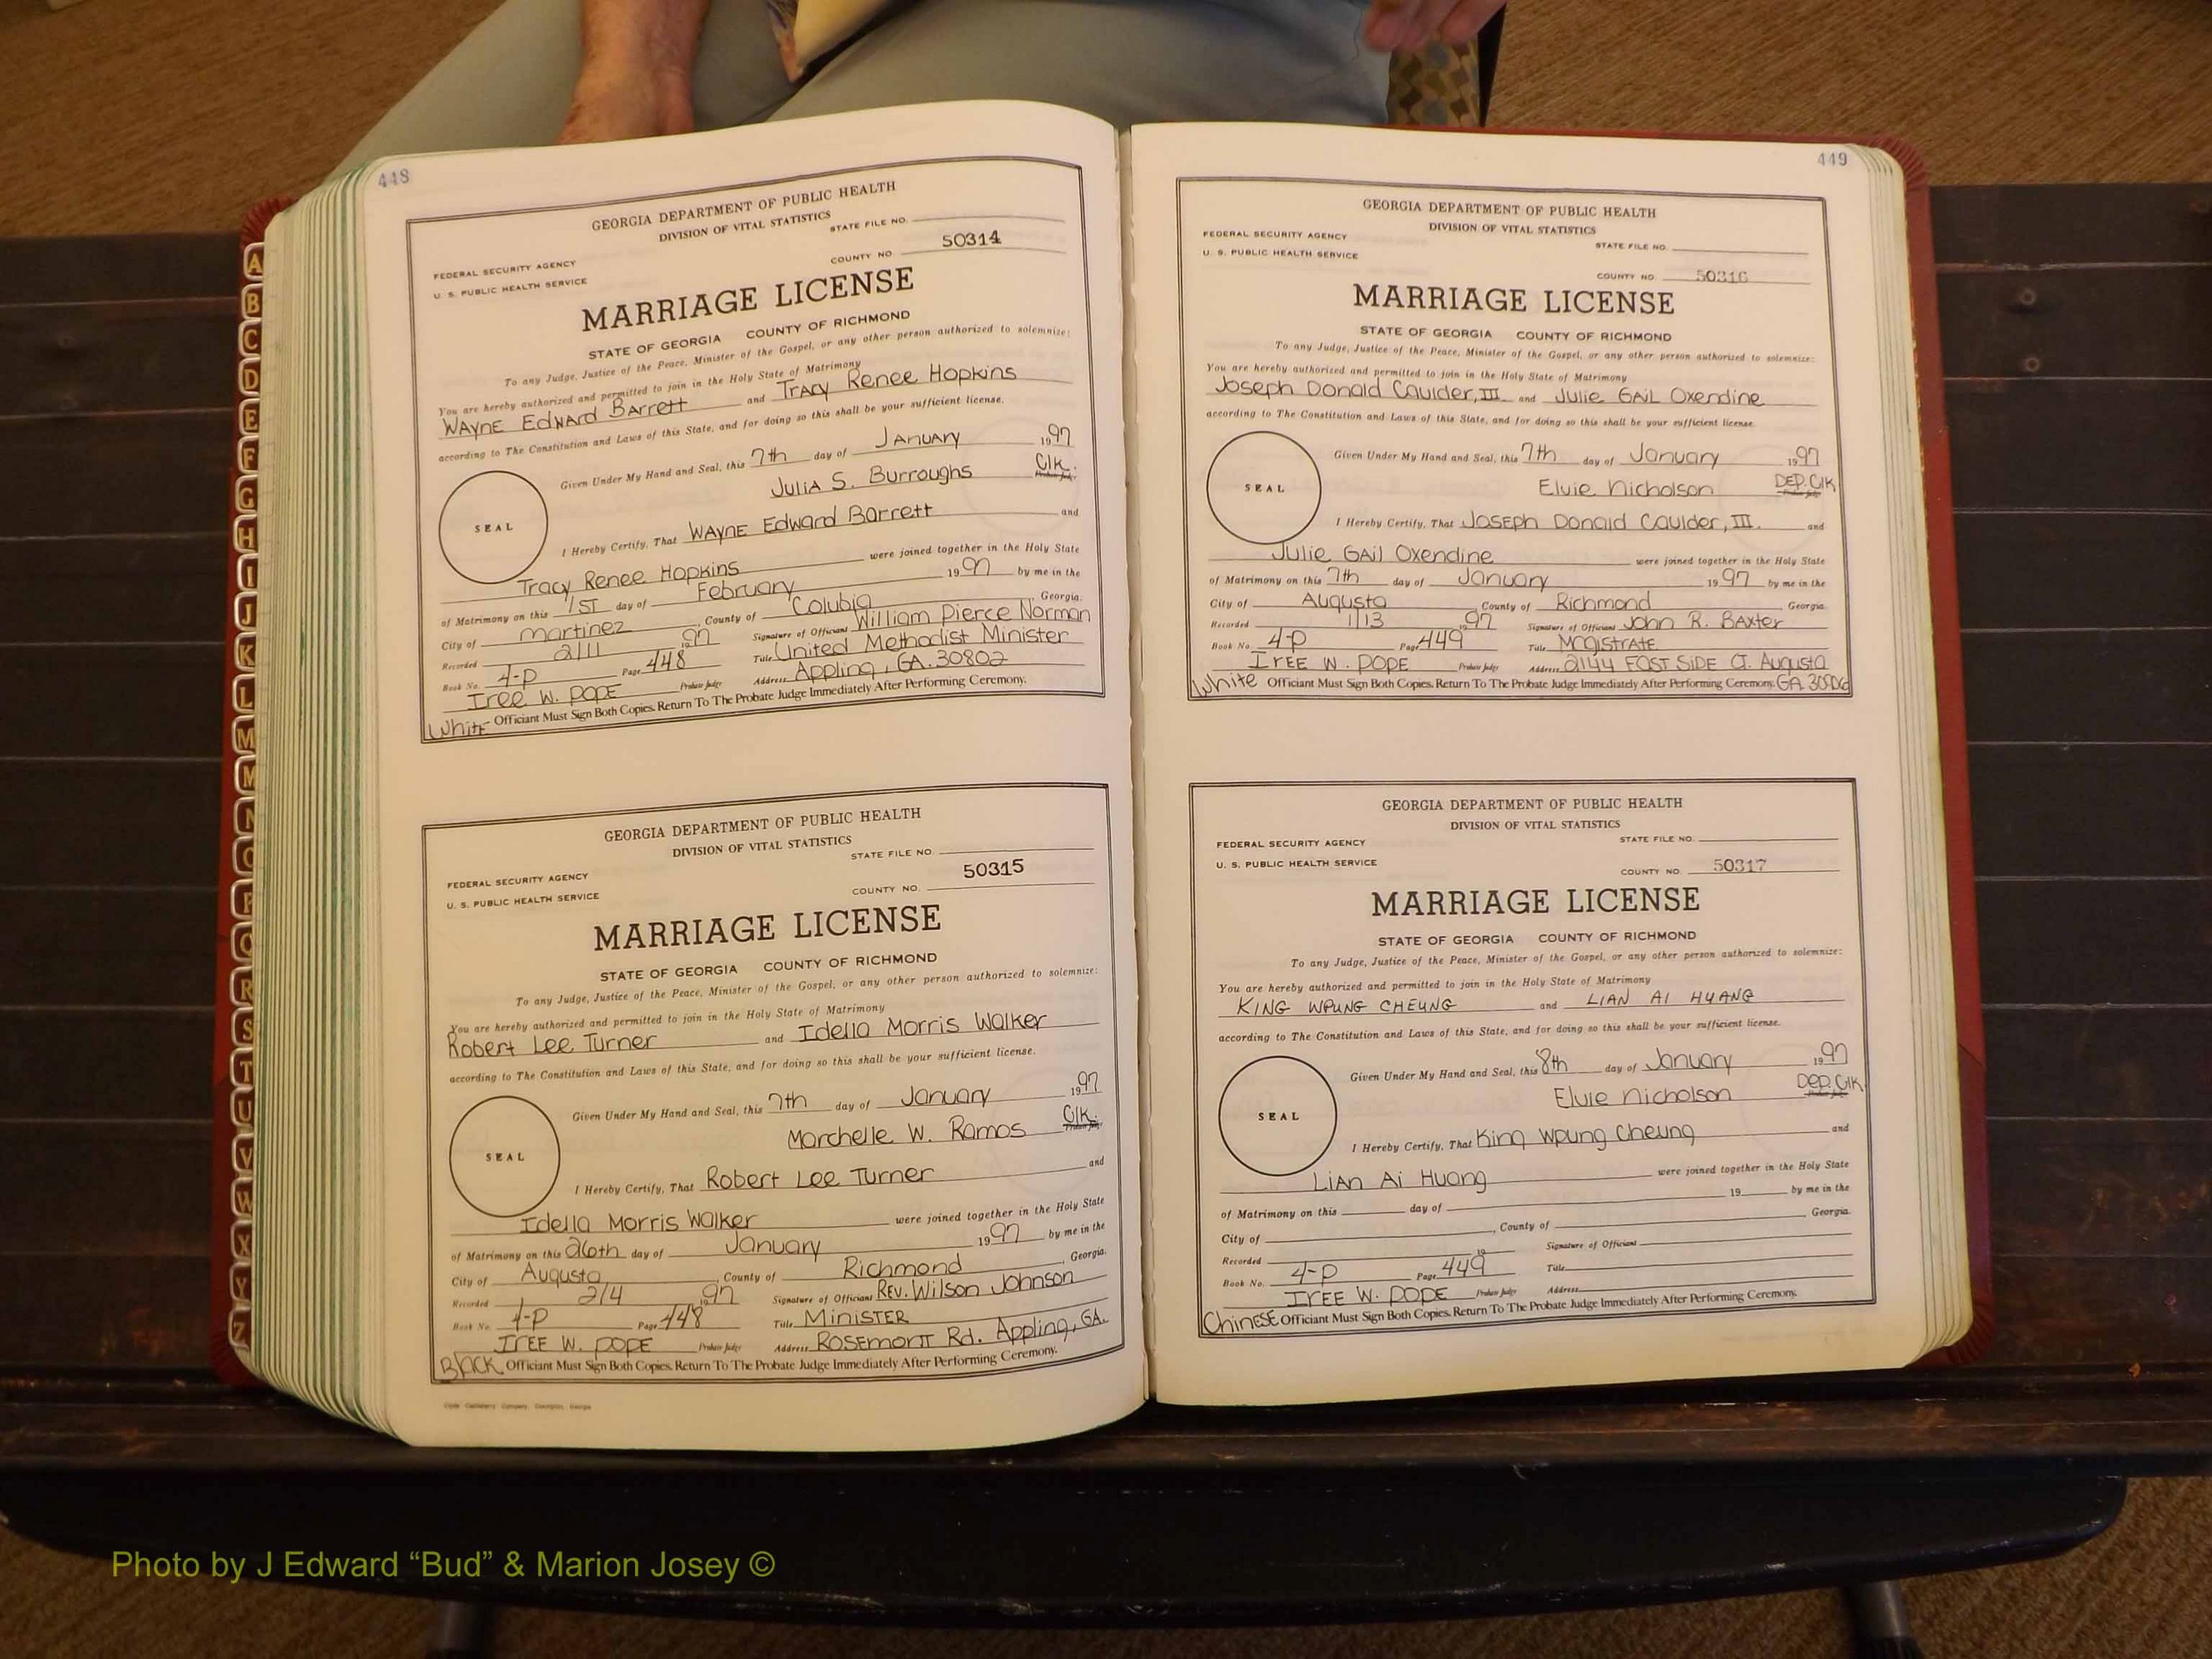 448
GEORGIA DEPARTMENT OF PUBLIC HEALTH
DIVISION OF VITAL STATISTICS
STATE FILE NO.
FEDERAL SECURITY AGENCY
U. S. PUBLIC HEALTH SERVICE
COUNTY NO 50314
MARRIAGE LICENSE
STATE OF GEORGIA COUNTY OF RICHMOND
To any Judge, Justice of the Peace, Minister of the Gospel, or any other person authorized to solemnize:
You are hereby authorized and permitted to join in the Holy State of Matrimony
WAYNE Edward Barrett and Tracy Renee Hopkins
according to The Constitution and Laws of this State, and for doing so this shall be your sufficient license.
Given Under My Hand and Seal, this 7th day of January 1997
Julia S. Burroughs Clk.
SEAL
I Hereby Certify, That WAYNE Edward Barrett and
Tracy Renee Hopkins were joined together in the Holy State
of Matrimony on this 1ST day of February 1997 by me in the
City of Martinez, County of Colubia Georgia.
Recorded 2/11 1997 Signature of Officiant William Pierce Norman
Book No. 4-P Page 448 Title United Methodist Minister
Iree W. POPE Probate Judge Address Appling, GA. 30802
White Officiant Must Sign Both Copies. Return To The Probate Judge Immediately After Performing Ceremony.
GEORGIA DEPARTMENT OF PUBLIC HEALTH
DIVISION OF VITAL STATISTICS
STATE FILE NO.
FEDERAL SECURITY AGENCY
U. S. PUBLIC HEALTH SERVICE
COUNTY NO. 50315
MARRIAGE LICENSE
STATE OF GEORGIA COUNTY OF RICHMOND
To any Judge, Justice of the Peace, Minister of the Gospel, or any other person authorized to solemnize:
You are hereby authorized and permitted to join in the Holy State of Matrimony
Robert Lee Turner and Idella Morris Walker
according to The Constitution and Laws of this State, and for doing so this shall be your sufficient license.
Given Under My Hand and Seal, this 7th day of January 1997
Marchelle W. Ramos Clk.
SEAL
I Hereby Certify, That Robert Lee Turner and
Idella Morris Walker were joined together in the Holy State
of Matrimony on this 26th day of January 1997 by me in the
City of Augusta, County of Richmond, Georgia.
Recorded 2/4 1997 Signature of Officiant Rev. Wilson Johnson
Book No. 4-P Page 448 Title Minister
IREE W. POPE Probate Judge Address Rosemont Rd. Appling, GA.
Black Officiant Must Sign Both Copies. Return To The Probate Judge Immediately After Performing Ceremony.
449
GEORGIA DEPARTMENT OF PUBLIC HEALTH
DIVISION OF VITAL STATISTICS
FEDERAL SECURITY AGENCY
STATE FILE NO.
U. S. PUBLIC HEALTH SERVICE
COUNTY NO. 50316
MARRIAGE LICENSE
STATE OF GEORGIA COUNTY OF RICHMOND
To any Judge, Justice of the Peace, Minister of the Gospel, or any other person authorized to solemnize:
You are hereby authorized and permitted to join in the Holy State of Matrimony
Joseph Donald Caulder, III and Julie GAiL Oxendine
according to The Constitution and Laws of this State, and for doing so this shall be your sufficient license.
Given Under My Hand and Seal, this 7th day of January 1997
Elvie Nicholson DEP. Clk
SEAL
I Hereby Certify, That Joseph Donald Caulder, III. and
Julie GAil Oxendine were joined together in the Holy State
of Matrimony on this 7th day of January 1997 by me in the
City of Augusta County of Richmond Georgia.
Recorded 1/13 1997 Signature of Officiant John R. Baxter
Book No. 4-P Page 449 Title Magistrate
IREE W. POPE Probate Judge Address 2144 East Side Ct. Augusta
White Officiant Must Sign Both Copies. Return To The Probate Judge Immediately After Performing Ceremony. GA
GEORGIA DEPARTMENT OF PUBLIC HEALTH
DIVISION OF VITAL STATISTICS
FEDERAL SECURITY AGENCY
STATE FILE NO.
U. S. PUBLIC HEALTH SERVICE
COUNTY NO. 50317
MARRIAGE LICENSE
STATE OF GEORGIA COUNTY OF RICHMOND
To any Judge, Justice of the Peace, Minister of the Gospel, or any other person authorized to solemnize:
You are hereby authorized and permitted to join in the Holy State of Matrimony
KING WPUNG CHEUNG and LIAN AI HUANG
according to The Constitution and Laws of this State, and for doing so this shall be your sufficient license.
Given Under My Hand and Seal, this 8th day of January 1997
Elvie Nicholson Dep. Clk
SEAL
I Hereby Certify, That King Wpung Cheung and
Lian Ai Huang were joined together in the Holy State
of Matrimony on this day of 19 by me in the
City of , County of Georgia.
Recorded 19 Signature of Officiant
Book No. 4-P Page 449 Title
IREE W. POPE Probate Judge Address
Chinese Officiant Must Sign Both Copies. Return To The Probate Judge Immediately After Performing Ceremony.
A
B
C
D
E
F
G
H
I
J
K
L
M
M
N
O
P
Q
R
S
T
U
V
W
X
Y
Z
Photo by J Edward “Bud” & Marion Josey ©